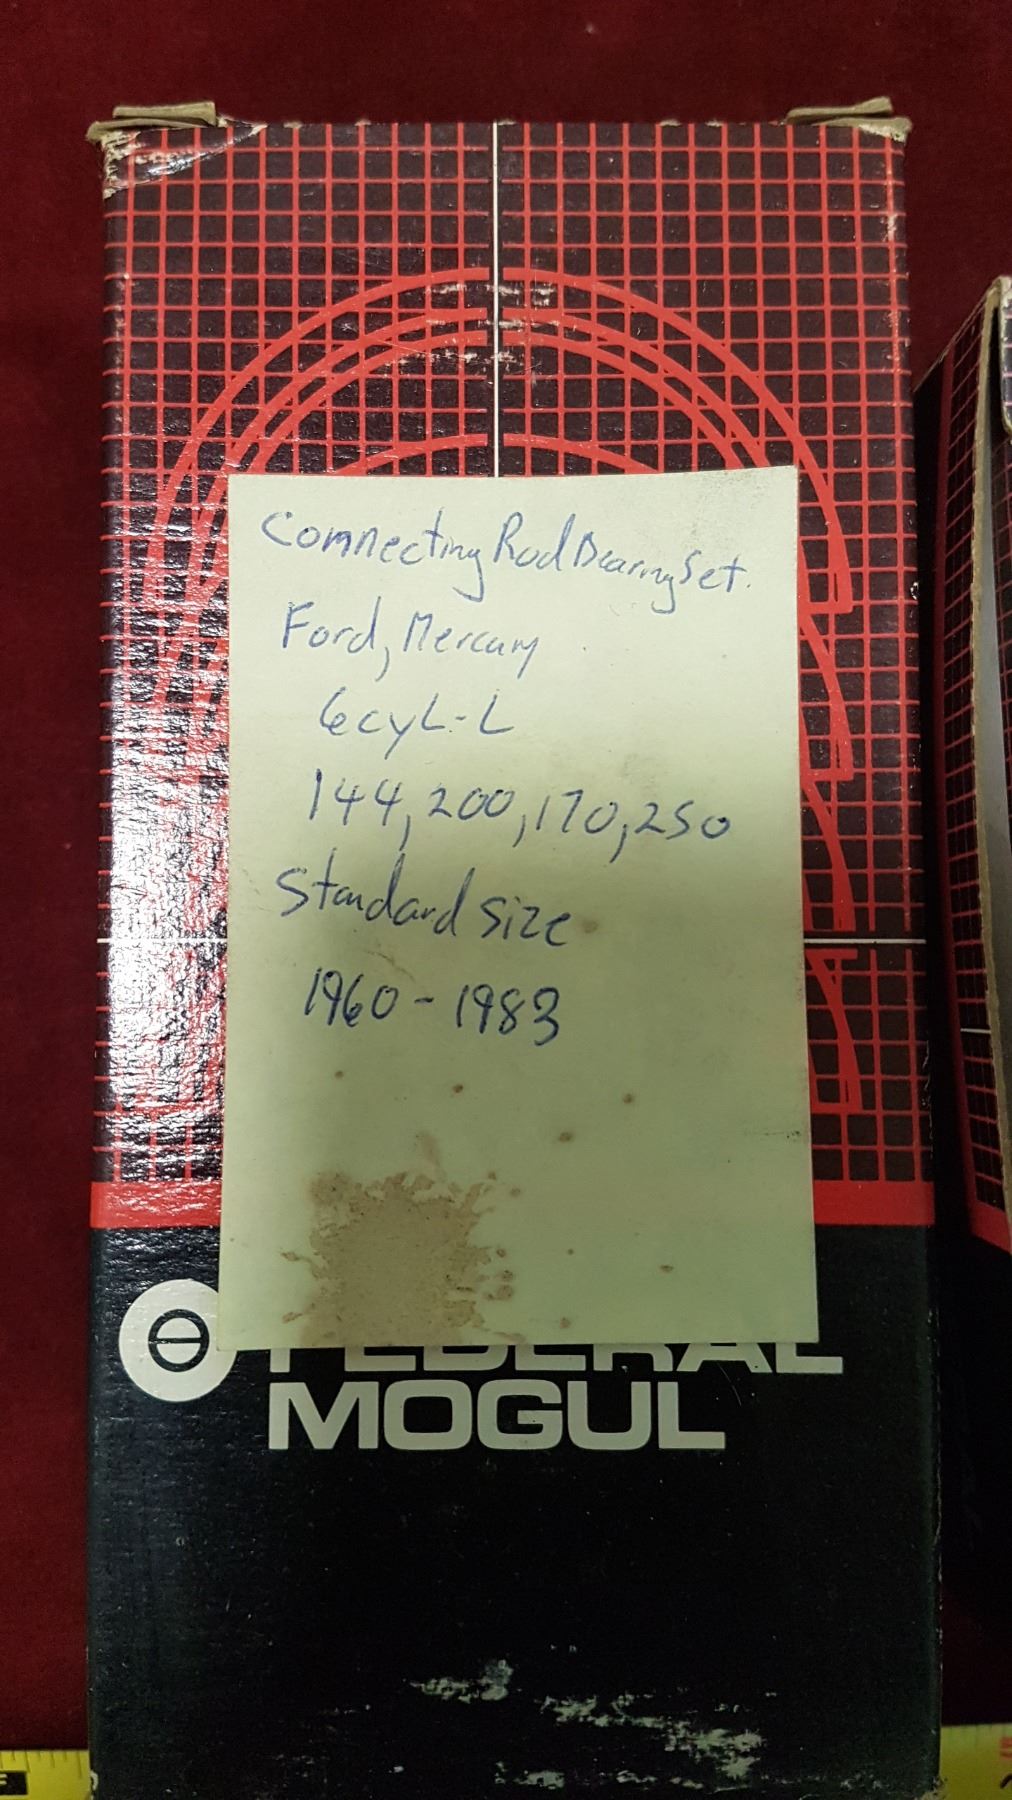 Connecting Rod Bearing Set.
Ford, Mercury
6cyL-L
144, 200, 170, 250
Standard size
1960-1983
FEDERAL
MOGUL